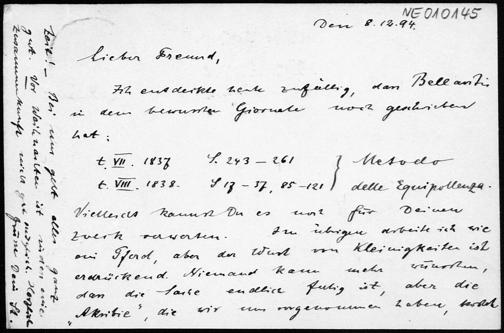 NE010145
Den 8.12.94.
Lieber Freund,
Ich entdeckte heute zufällig, dass Bellavitis
in dem bewussten Giornale noch geschrieben
hat:
t. VII. 1837 S. 243 – 261 } Metodo
t. VIII. 1838. S 17 – 37, 85 – 121 delle Equipollenza.
Vielleicht kannst Du es noch für Deinen
Zweck verwerten. Im übrigen arbeite ich wie
ein Pferd, aber der Wust von Kleinigkeiten ist
erdrückend. Niemand kann mehr wünschen,
dass die Sache endlich fertig ist, aber die
"Akribie", die wir uns vorgenommen haben,
Bei uns geht alles ganz
gut. Vor Weihnachten ist
Zusammenkunft nicht gut möglich. Herzlich